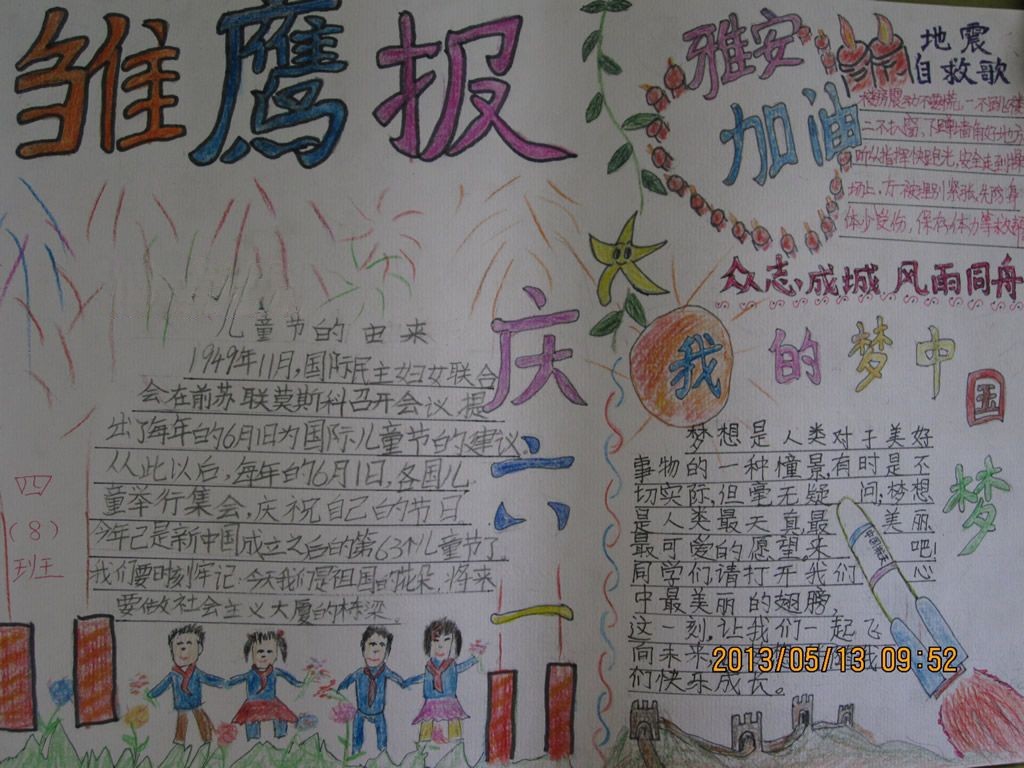 雏鹰报
儿童节的由来
1949年11月,国际民主妇女联合
会在前苏联莫斯科召开会议,提
出了每年的6月1日为国际儿童节的建议。
从此以后,每年的6月1日,各国儿
童举行集会,庆祝自己的节日
今年已是新中国成立之后的第63个儿童节了。
我们要时刻牢记:今天我们是祖国的花朵,将来
要做社会主义大厦的桥梁。
四
(8)
班
庆
六
一
雅安
加油
地震
自救歌
二不扒窗,下蹲墙角好地方
听从指挥快跑光,安全走到操
场上,万一被埋别紧张,先防身
体少受伤,保存体力等救部
众志成城 风雨同舟
我的梦中国梦
梦想是人类对于美好
事物的一种憧景,有时是不
切实际,但毫无疑问;梦想
是人类最天真最美丽
最可爱的愿望。来吧!
同学们请打开我们心
中最美丽的翅膀,
这一刻,让我们一起飞
向未来,我
们快乐成长。
2013/05/13 09:52